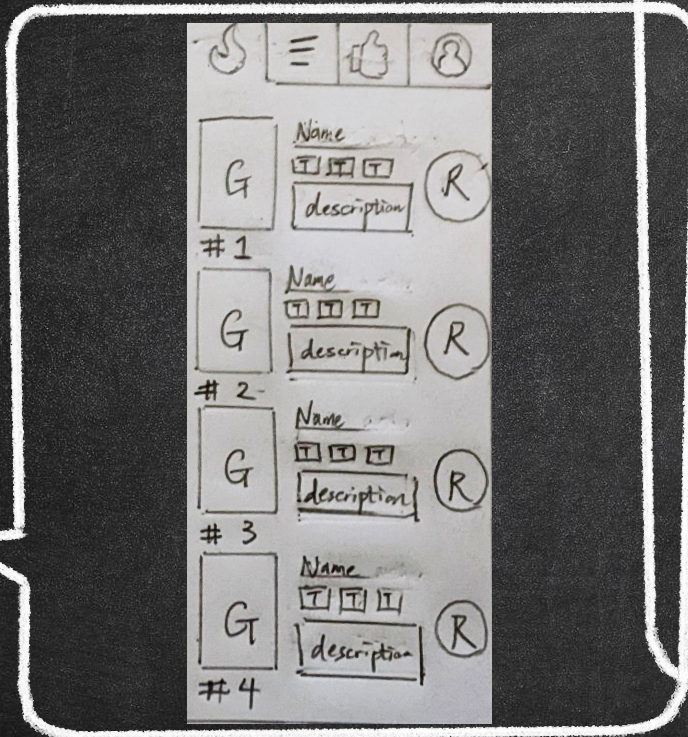 Name
T T T
G
description
R
# 1
Name
T T T
G
description
R
# 2
Name
T T T
G
description
R
# 3
Name
T T T
G
description
R
# 4